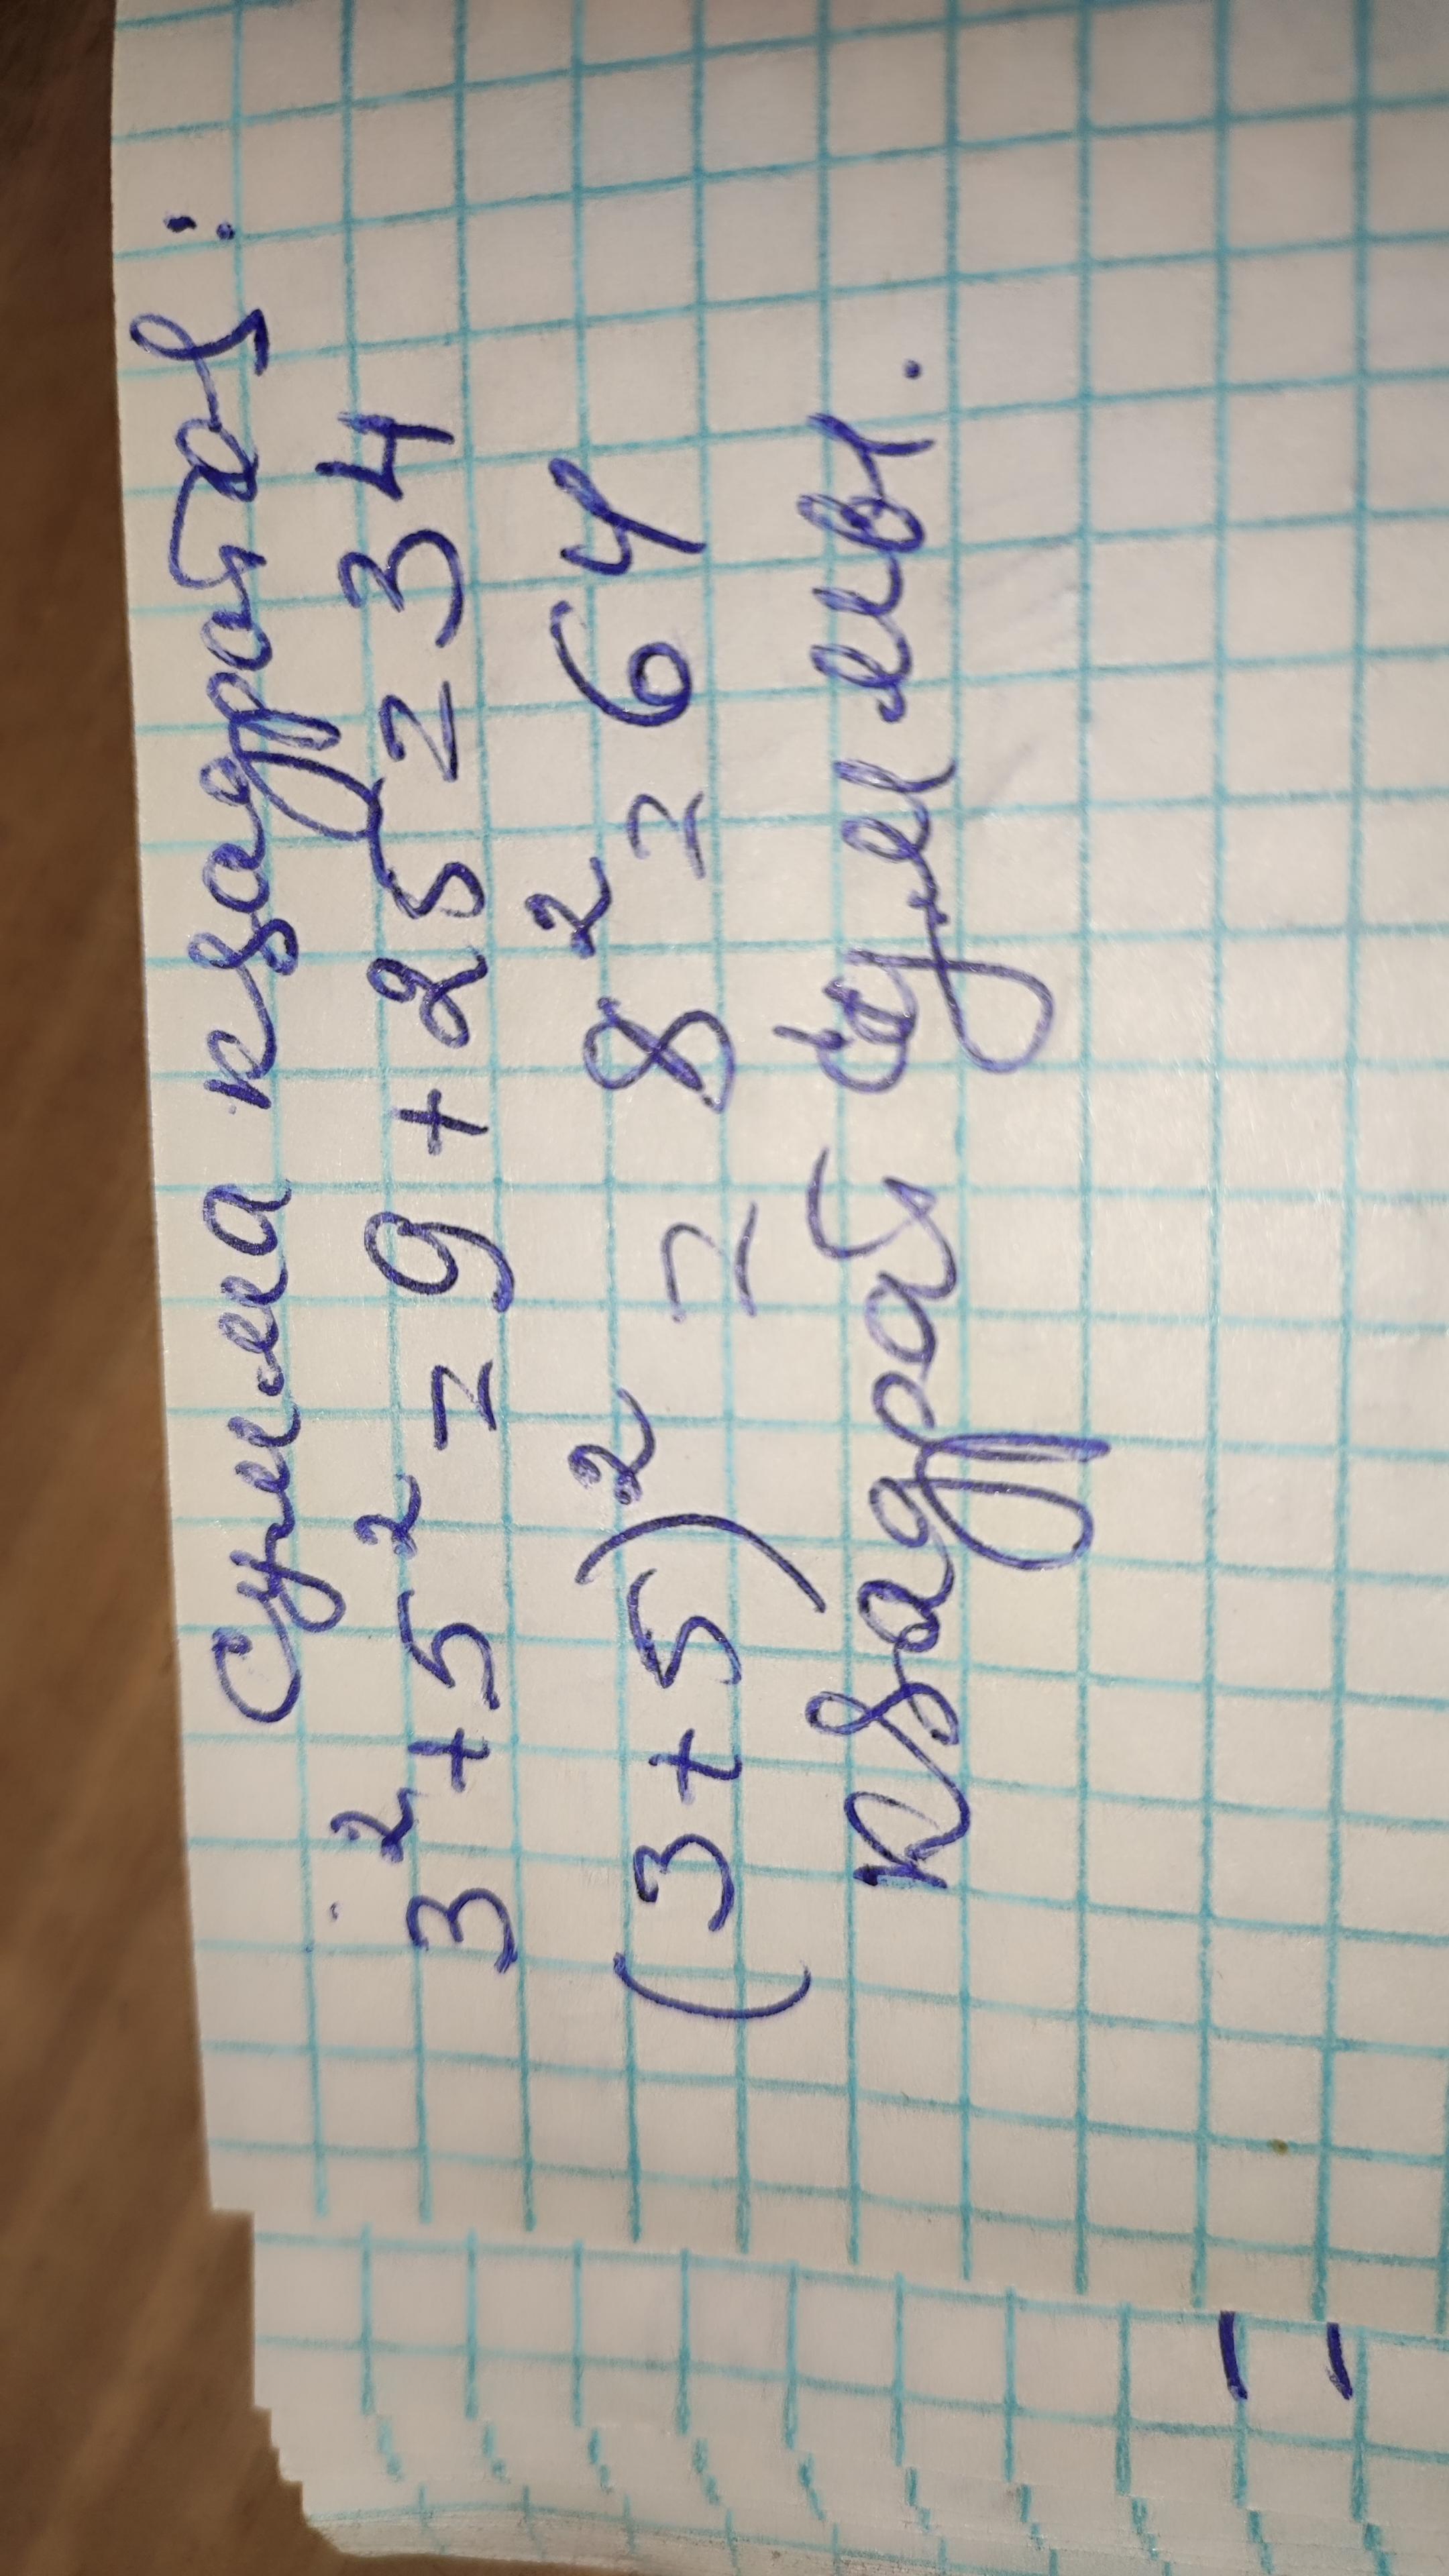 Сумма квадратов:
3² + 5² = 9 + 25 = 34
(3 + 5)² = 8² = 64
квадрат суммы.